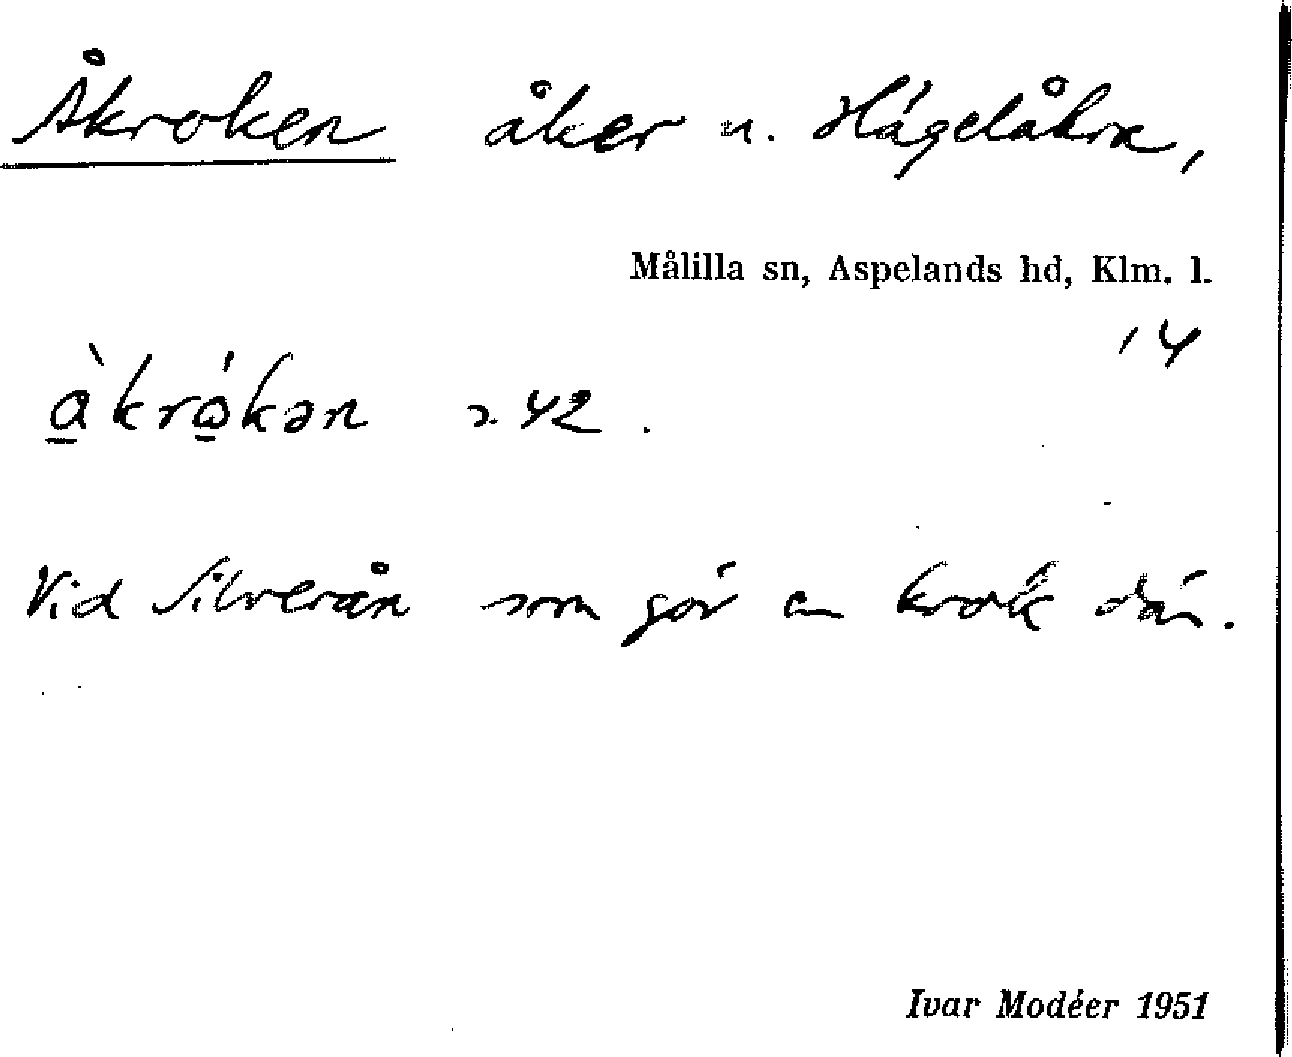 Åkroken åker u. Hägelåkra,
Målilla sn, Aspelands hd, Klm. l.
14
à̲kró̲kən 242.
Vid Silverån som gör en krok där.
Ivar Modéer 1951